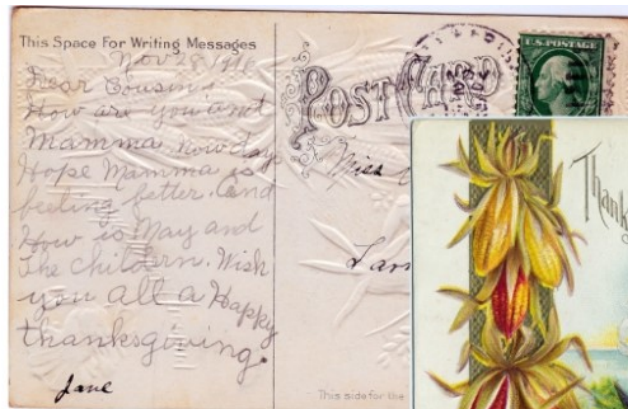 This Space For Writing Messages
Nov 28 1916
Dear Cousin,
How are you and
Mamma now days
Hope Mamma is
feeling better. and
How is May and
the childern. Wish
you all a Happy
thanksgiving.
Jane
POST CARD
U.S. POSTAGE
Miss
Lan
This side for the
Thank